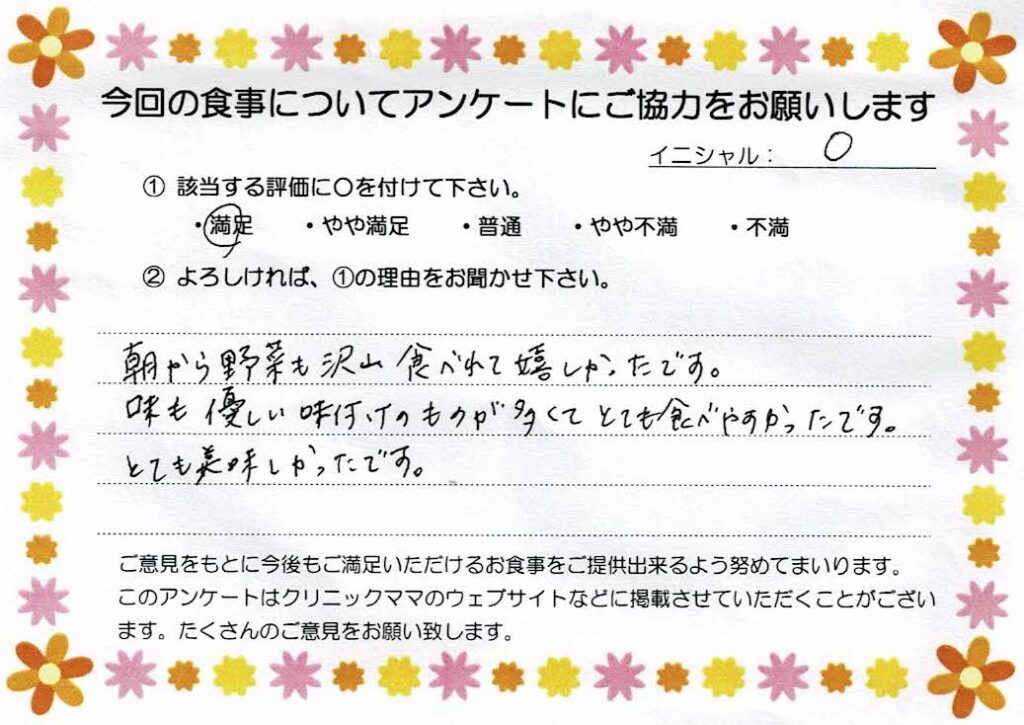 今回の食事についてアンケートにご協力をお願いします
イニシャル： O
① 該当する評価に〇を付けて下さい。
・満足 ・やや満足 ・普通 ・やや不満 ・不満
② よろしければ、①の理由をお聞かせ下さい。
朝から野菜も沢山食べれて嬉しかったです。
味も優しい味付けのものが多くてとても食べやすかったです。
とても美味しかったです。
ご意見をもとに今後もご満足いただけるお食事をご提供出来るよう努めてまいります。
このアンケートはクリニックママのウェブサイトなどに掲載させていただくことがござい
ます。たくさんのご意見をお願い致します。